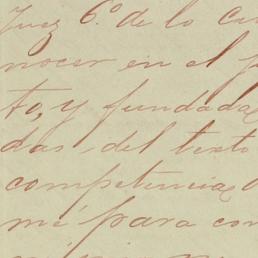 Juez 6.º de lo Ci
nocer en el p
to, y fundada
das del texto
competencia,
mé para con